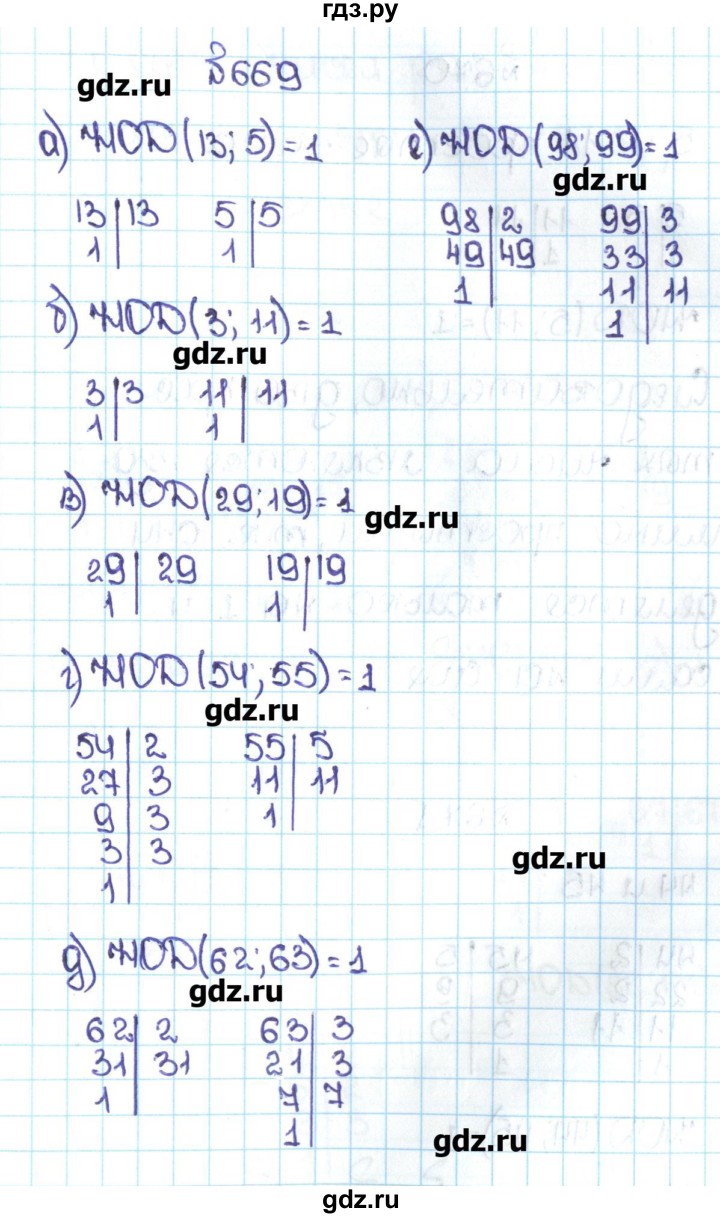 гдз.ру
№669
gdz.ru
а) НОД(13; 5) = 1
13 | 13 5 | 5
1 | 1 |
б) НОД(3; 11) = 1
gdz.ru
3 | 3 11 | 11
1 | 1 |
в) НОД(29; 19) = 1
gdz.ru
29 | 29 19 | 19
1 | 1 |
г) НОД(54; 55) = 1
gdz.ru
54 | 2 55 | 5
27 | 3 11 | 11
9 | 3 1 |
3 | 3
1 |
gdz.ru
д) НОД(62; 63) = 1
gdz.ru
62 | 2 63 | 3
31 | 31 21 | 3
1 | 7 | 7
1 |
gdz.ru
е) НОД(98; 99) = 1
gdz.ru
98 | 2 99 | 3
49 | 49 33 | 3
1 | 11 | 11
1 |
gdz.ru